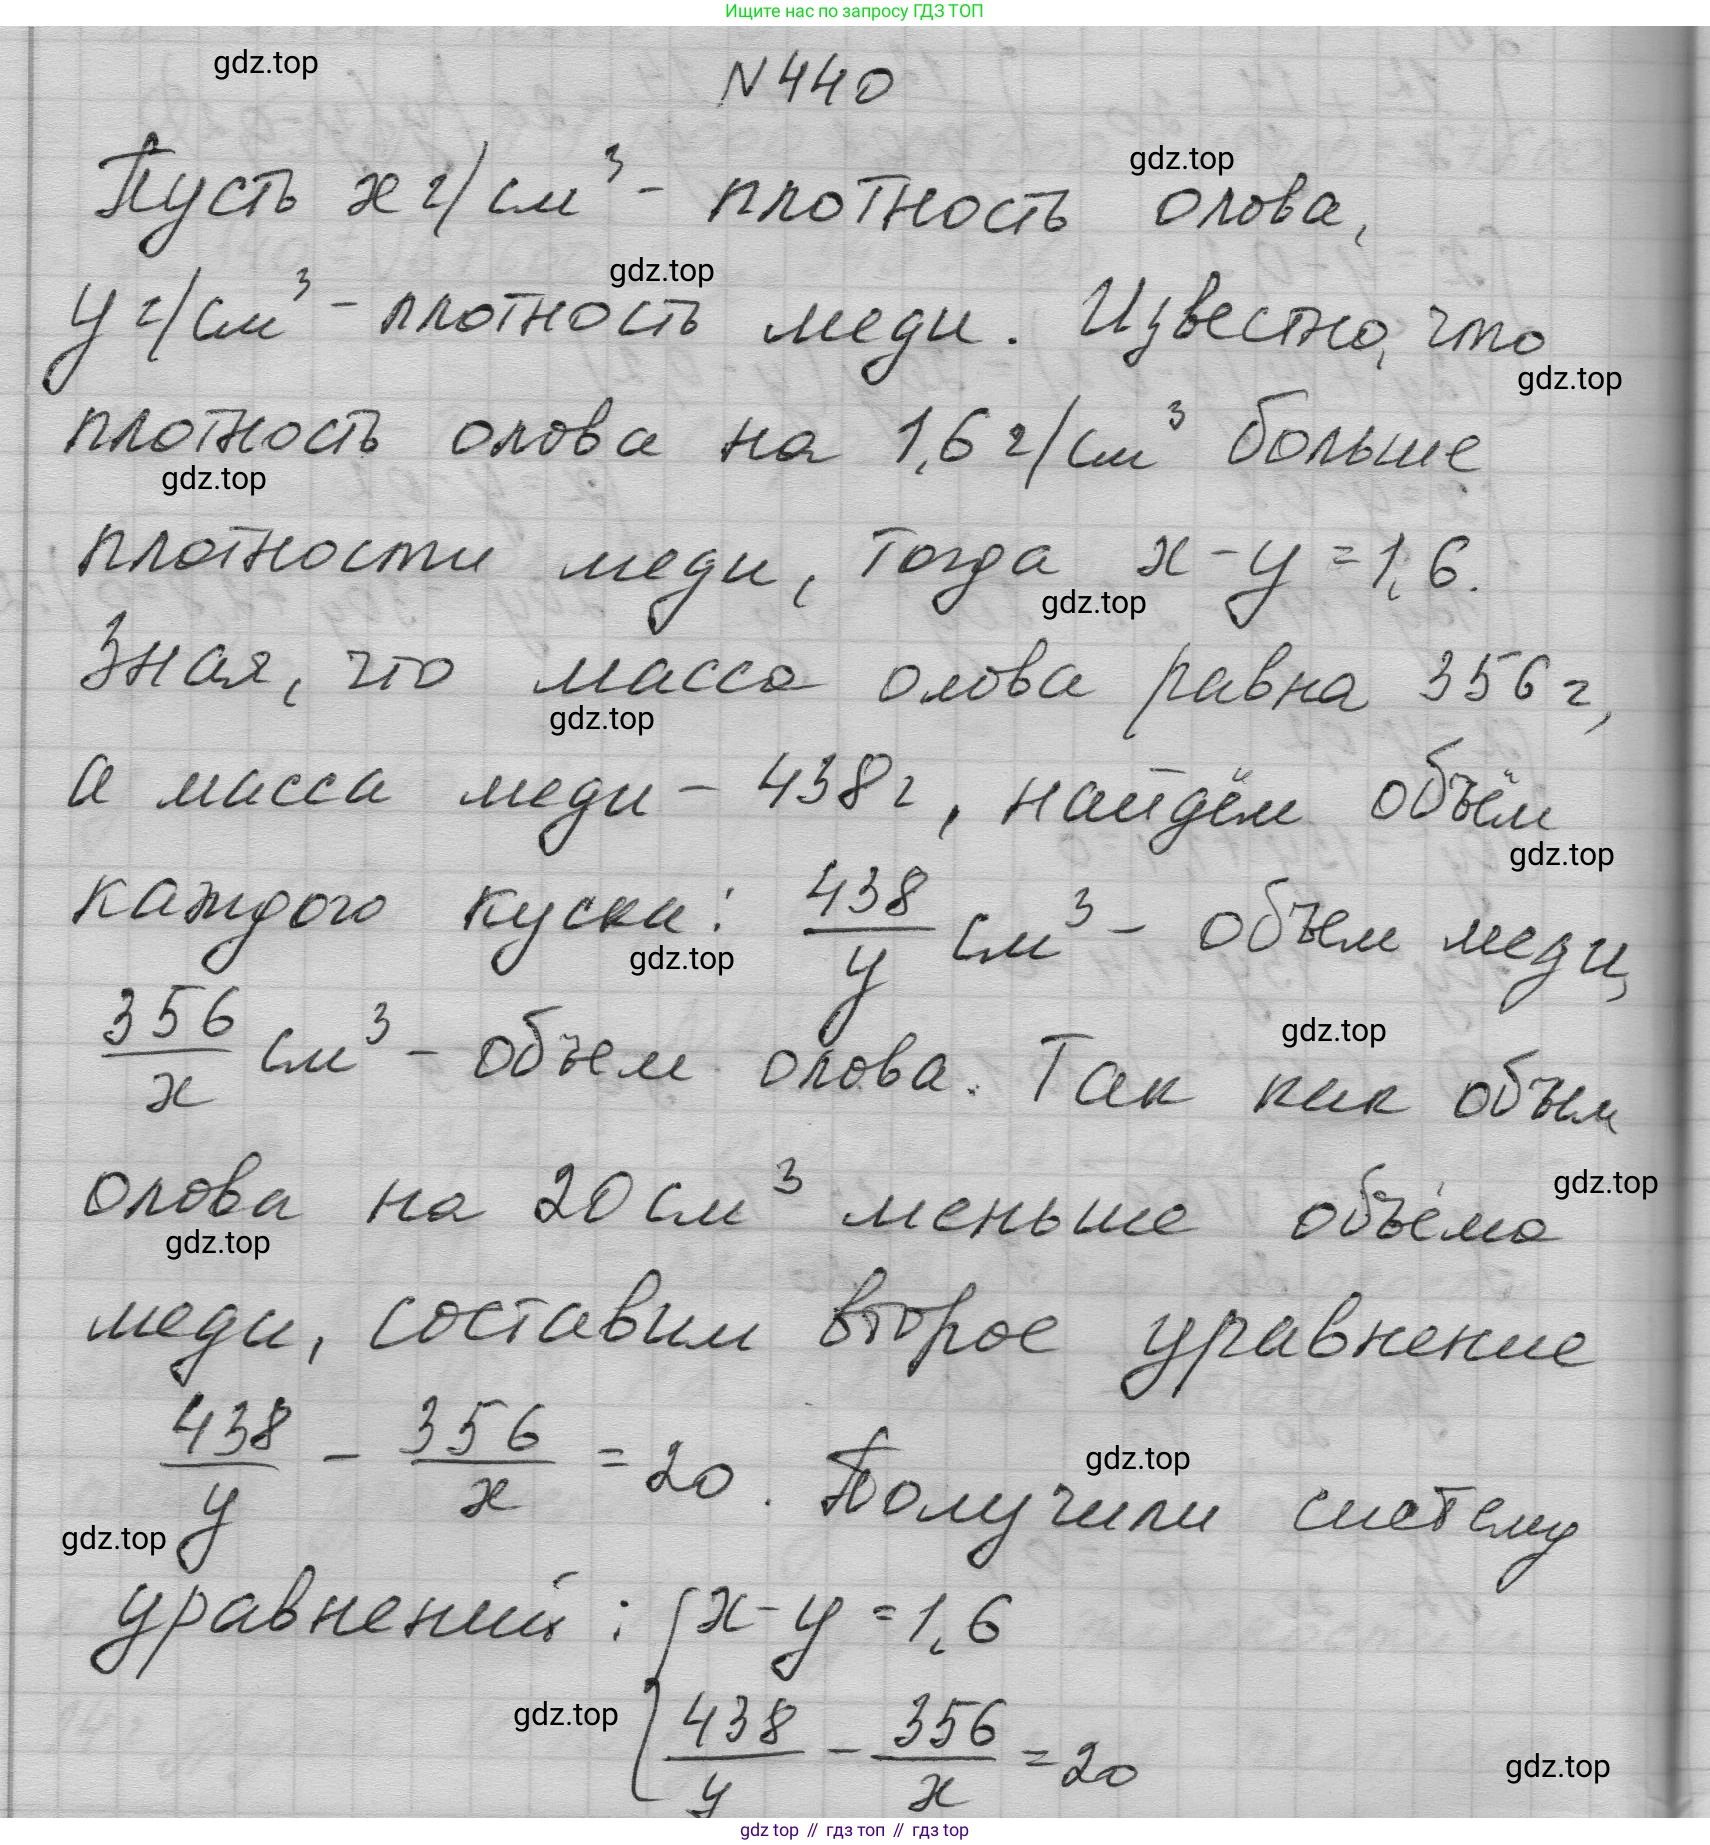 Ищите нас по запросу ГДЗ ТОП
gdz.top
N 440
gdz.top
Пусть x г/см³ - плотность олова,
gdz.top
y г/см³ - плотность меди. Известно, что
gdz.top
плотность олова на 1,6 г/см³ больше
gdz.top
плотности меди, тогда x - y = 1,6.
gdz.top
Зная, что масса олова равна 356 г,
gdz.top
а масса меди - 438 г, найдём объём
gdz.top
каждого куска: 438/y см³ - объем меди,
gdz.top
356/x см³ - объем олова. Так как объем
gdz.top
олова на 20 см³ меньше объёма
gdz.top
gdz.top
меди, составим второе уравнение
438/y - 356/x = 20. Получили систему
gdz.top
gdz.top
уравнений: { x - y = 1,6
438/y - 356/x = 20
gdz.top
gdz.top
gdz top // гдз топ // гдз top